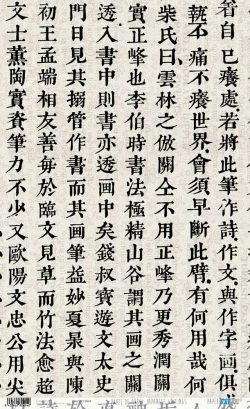 自已癢處若將此筆作詩作文與作字畫俱
不痛不癢世界會須早斷此臂有何用哉何
柴氏曰雲林之倣關仝不用正峰乃更秀潤關
實正峰也李伯時書法極精山谷謂其画之關
透入書中則書亦透画中矣錢叔寶遊文太史
門日見其搦管作書而其画筆益妙夏㫤與陳
初王孟端相友善每於臨文見草而竹法愈超
文士薰陶實賚筆力不少又歐陽文忠公用尖